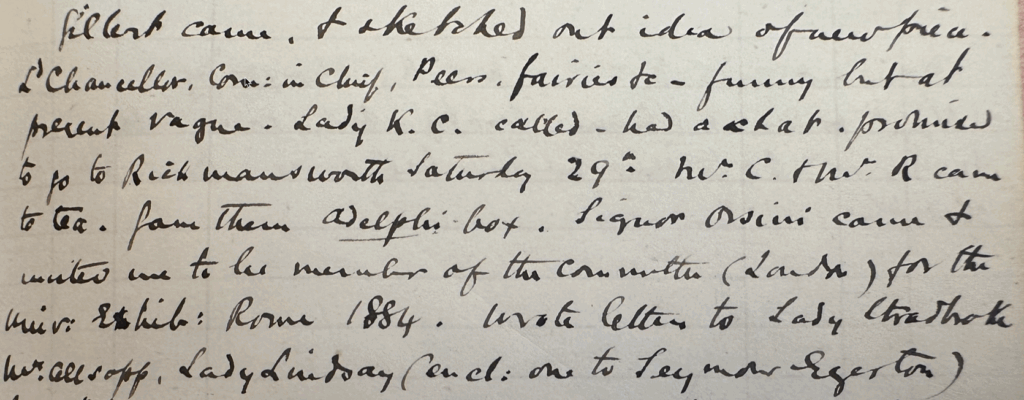 Gilbert came, & sketched out idea of new piece.
Ld Chancellor, Com: in Chief, Peers, fairies &c - funny but at
present vague. Lady K. C. called - had a chat. promised
to go to Rickmansworth Saturday 29th. Mrs. C. & Mr. R came
to tea. Gave them Adelphi box. Signor Orsini came &
invited me to be member of the committee (London) for the
Univ: Exhib: Rome 1884. Wrote letters to Lady Stradbroke
Mr. Allsopp, Lady Lindsay (encl: one to Seymour Egerton)